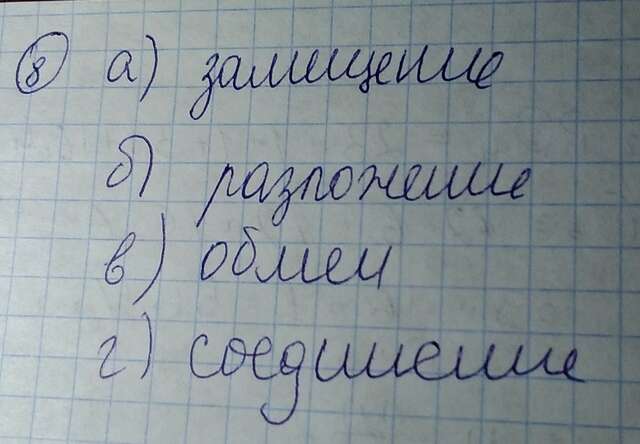 8 а) замещение
б) разложение
в) обмен
г) соединение